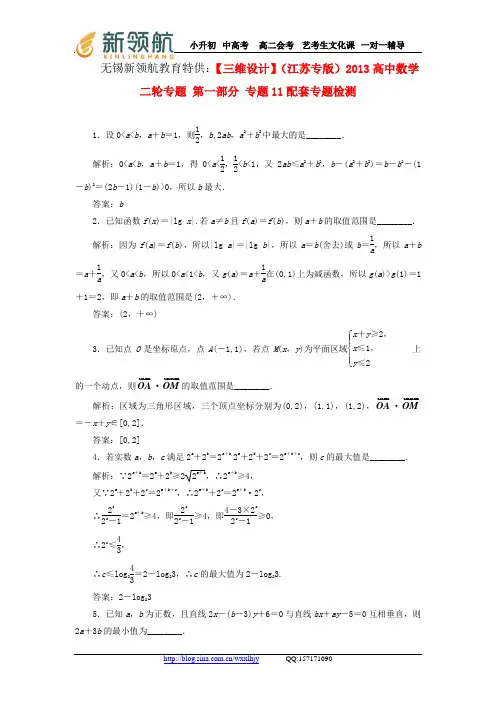 新领航
XINLINGHANG
小升初 中高考 高二会考 艺考生文化课 一对一辅导
无锡新领航教育特供:【三维设计】(江苏专版)2013高中数学
二轮专题 第一部分 专题11配套专题检测
1.设0<a<b,a+b=1,则1/2,b,2ab,a²+b²中最大的是________.
解析:0<a<b,a+b=1,得0<a<1/2,1/2<b<1,又2ab≤a²+b²,b-(a²+b²)=b-b²-(1
-b)²=(2b-1)(1-b)>0,所以b最大.
答案:b
2.已知函数f(x)=|lg x|.若a≠b且f(a)=f(b),则a+b的取值范围是________.
解析:因为f(a)=f(b),所以|lg a|=|lg b|,所以a=b(舍去)或b=1/a,所以a+b
=a+1/a,又0<a<b,所以0<a<1<b,又g(a)=a+1/a在(0,1)上为减函数,所以g(a)>g(1)=1
+1=2,即a+b的取值范围是(2,+∞).
答案:(2,+∞)
3.已知点O是坐标原点,点A(-1,1),若点M(x,y)为平面区域{x+y≥2, x≤1, y≤2 上
的一个动点,则OA·OM的取值范围是________.
解析:区域为三角形区域,三个顶点坐标分别为(0,2),(1,1),(1,2),OA·OM
=-x+y∈[0,2].
答案:[0,2]
4.若实数a,b,c满足2^a+2^b=2^(a+b),2^a+2^b+2^c=2^(a+b+c),则c的最大值是________.
解析:∵2^(a+b)=2^a+2^b≥2√(2^(a+b)),∴2^(a+b)≥4,
又∵2^a+2^b+2^c=2^(a+b+c),∴2^(a+b)+2^c=2^(a+b)·2^c,
∴2^c/(2^c-1)=2^(a+b)≥4,即2^c/(2^c-1)≥4,即(4-3×2^c)/(2^c-1)≥0,
∴2^c≤4/3,
∴c≤log₂4/3=2-log₂3,∴c的最大值为2-log₂3.
答案:2-log₂3
5.已知a,b为正数,且直线2x-(b-3)y+6=0与直线bx+ay-5=0互相垂直,则
2a+3b的最小值为________.
http://blog.sina.com.cn/wxxlhjy QQ:157171090